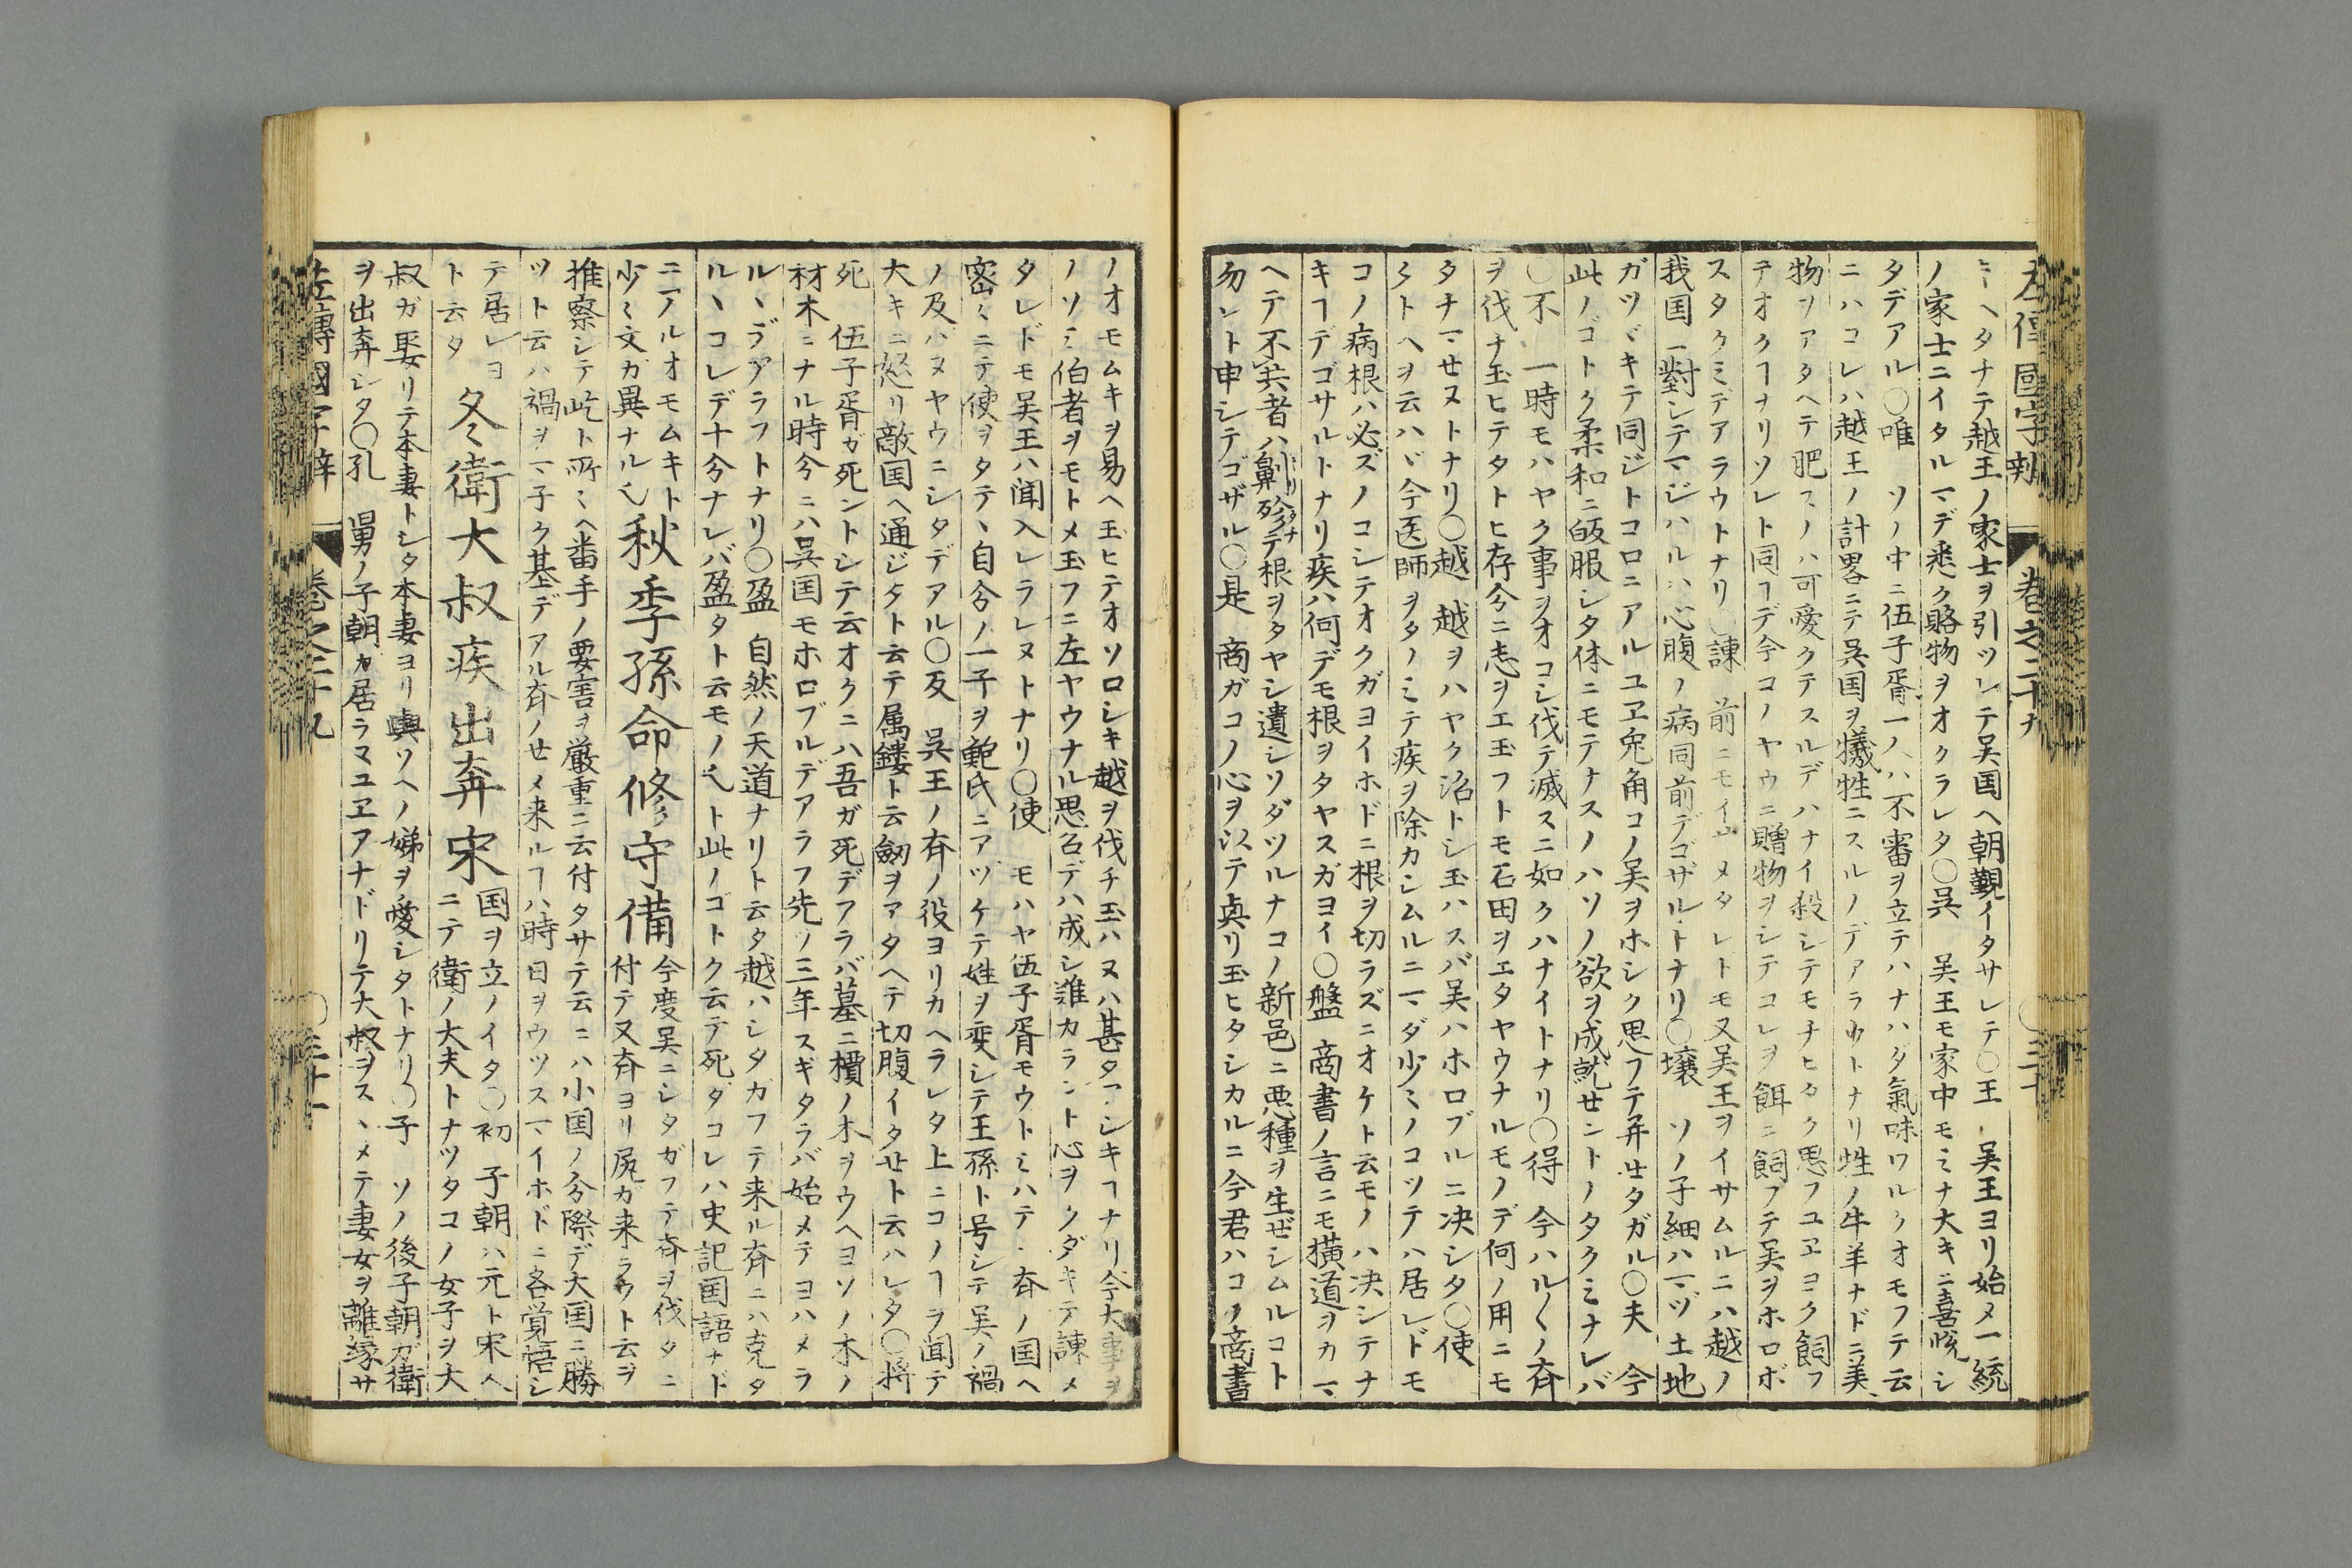 左傳國字辨 卷之二十九 ○三十
ミヘタチテ越王ノ家士ヲ引ツレテ吴国ヘ朝覲イタサレテ○王 吴王ヨリ始メ一統
ノ家士ニイタルマデ悉ク賂物ヲオクラレタ○吴 吴王モ家中モミナ大キニ喜悦シ
タデアル○唯 ソノ中ニ伍子胥一人ハ不審ヲ立テハナハダ氣味ワルクオモフテ云
ニハコレハ越王ノ計畧ニテ吴国ヲ犠牲ニスルノデアラウトナリ牲ノ牛羊ナドニ美
物ヲアタヘテ肥スノハ可愛クテスルデハナイ殺シテモチヒタク思フユヱヨク飼フ
テオクヿナリソレト同ヿデ今コノヤウニ贈物ヲシテコレヲ餌ニ飼フテ吴ヲホロボ
スタクミデアラウトナリ○諫 前ニモイマシメタレトモ又吴王ヲイサムルニハ越ノ
我国ニ對シテマジハルハ心腹ノ病同前デゴザルトナリ○壌 ソノ子細ハマヅ土地
ガツヾキテ同ジトコロニアルユヱ兎角コノ吴ヲホシク思フテ弁セタガル○夫 今
此ノゴトク柔和ニ皈服シタ体ニモテナスノハソノ欲ヲ成就セントノタクミナレバ
○不 一時モハヤク事ヲオコシ伐テ滅スニ如クハナイトナリ○得 今ハル〱ノ斉
ヲ伐ナ玉ヒテタトヒ存分ニ志ヲエ玉フトモ石田ヲエタヤウナルモノデ何ノ用ニモ
タチマセヌトナリ○越 越ヲハヤク沼トシ玉ハスバ吴ハホロブルニ决シタ○使
タトヘヲ云ハヾ今医師ヲタノミテ疾ヲ除カシムルニマダ少ミノコツテハ居レドモ
コノ病根ハ必ズノコシテオクガヨイホドニ根ヲ切ラズニオケト云モノハ决シテナ
キヿデゴサルトナリ疾ハ何デモ根ヲタヤスガヨイ○盤 商書ノ言ニモ横道ヲカマ
ヘテ不共者ハ劓殄テ根ヲタヤシ遺シソダツルナコノ新邑ニ悪種ヲ生ゼシムルコト
勿レト申シテゴザル○是 商ガコノ心ヲ以テ真リ玉ヒタシカルニ今君ハコノ商書
ノオモムキヲ易ヘ玉ヒテオソロシキ越ヲ伐チ玉ハヌハ甚タアシキヿナリ今大事ヲ
ノソミ伯者ヲモトメ玉フニ左ヤウナル思召デハ成シ難カラント心ヲクダキテ諌メ
タレドモ吴王ハ聞入レラレヌトナリ○使 モハヤ伍子胥モウトミハテ斉ノ国ヘ
密〻ニテ使ヲタテヽ自分ノ一子ヲ鮑氏ニアヅケテ姓ヲ変シテ王孫ト号シテ吴ノ禍
ノ及バヌヤウニシタデアル○反 吴王ノ斉ノ役ヨリカヘラレタ上ニコノヿヲ聞テ
大キニ怒リ敵国ヘ通ジタト云テ属鏤ト云劔ヲアタヘテ切腹イタセト云ハレタ○将
死 伍子胥ガ死ントシテ云オクニハ吾ガ死デアラバ墓ニ檟ノ木ヲウヘヨソノ木ノ
材木ニナル時分ニハ吴国モホロブルデアラフ先ノ三年スギタラバ始メテヨハメラ
ルヽデアラフトナリ○盈 自然ノ天道ナリト云タ越ハシタカフテ来ル斉ニハ克タ
ルヽコレデ十分ナレバ盈タト云モノ也ト此ノゴトク云テ死ダコレハ史記国語ナド
ニアルオモムキト
少〻文ガ異ナル也 秋季孫命修守備 今度吴ニシタガフテ斉ヲ伐タニ
付テ又斉ヨリ尻ガ来ラウト云ヲ
推察シテ屹ト所〻ヘ番手ノ要害ヲ厳重ニ云付タサテ云ニハ小国ノ分際デ大国ニ勝
ツト云ハ禍ヲマ子ク基デアル斉ノセメ来ルヿハ時日ヲウツスマイホドニ各覚悟シ
テ居レヨ
ト云タ 冬衛大叔疾出奔宋 国ヲ立ノイタ○初 子朝ハ元ト宋人
ニテ衛ノ大夫トナツタコノ女子ヲ大
叔ガ娶リテ本妻トシタ本妻ヨリ輿ソヘノ娣ヲ愛シタトナリ○子 ソノ後子朝ガ衛
ヲ出奔シタ○孔 舅ノ子朝ガ居ラマユヱアナドリテ大叔ヲスヽメテ妻女ヲ離縁サ
左傳國字辨 卷之二十九 ○三十一